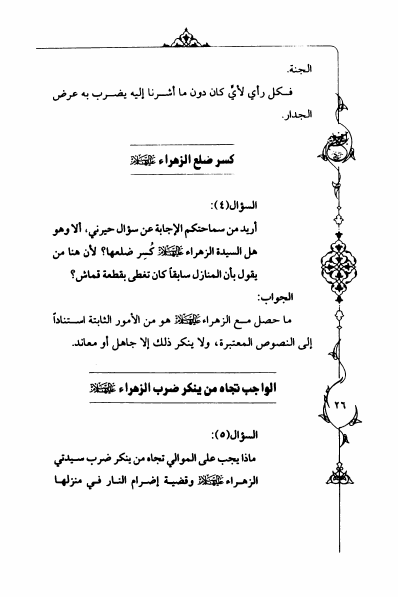 الجنة.
فكل رأي لأيٍّ كان دون ما أشرنا إليه يضرب به عرض
الجدار.
كسر ضلع الزهراء عليها السلام
السؤال(٤):
أريد من سماحتكم الإجابة عن سؤال حيرني، ألا وهو
هل السيدة الزهراء عليها السلام كُسر ضلعها؟ لأن هنا من
يقول بأن المنازل سابقاً كان تغطى بقطعة قماش؟
الجواب:
ما حصل مع الزهراء عليها السلام هو من الأمور الثابتة استناداً
إلى النصوص المعتبرة، ولا ينكر ذلك إلا جاهل أو معاند.
الواجب تجاه من ينكر ضرب الزهراء عليها السلام
٢٦
السؤال(٥):
ماذا يجب على الموالي تجاه من ينكر ضرب سيدتي
الزهراء عليها السلام وقضية إضرام النار في منزلها